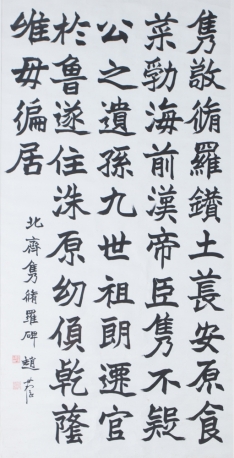 隽敬脩羅鑽土長安原食
菜勃海前漢帝臣隽不疑
公之遺孫九世祖朗遷官
於魯遂住洙原幼傾乾蔭
唯毋偏居
北齊隽脩羅碑 趙